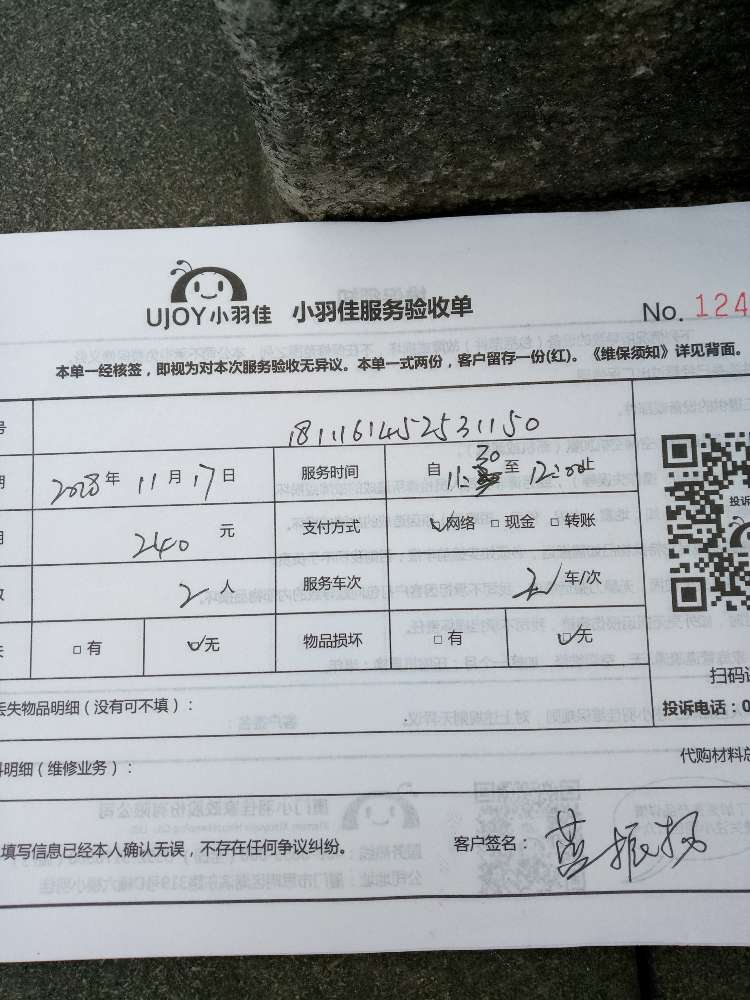 UJOY小羽佳 小羽佳服务验收单 No. 124
本单一经核签，即视为对本次服务验收无异议。本单一式两份，客户留存一份(红)。《维保须知》详见背面。
号 1811161452531150
期 2028年 11月17日 服务时间 自 11:30 至 12:00止
240 元 支付方式 ☑网络 □现金 □转账
2人 服务车次 2 车/次
□有 ☑无 物品损坏 □有 ☑无
投诉
扫码
丢失物品明细（没有可不填）： 投诉电话：0
料明细（维修业务）： 代购材料总
填写信息已经本人确认无误，不存在任何争议纠纷。 客户签名：蓝振扬